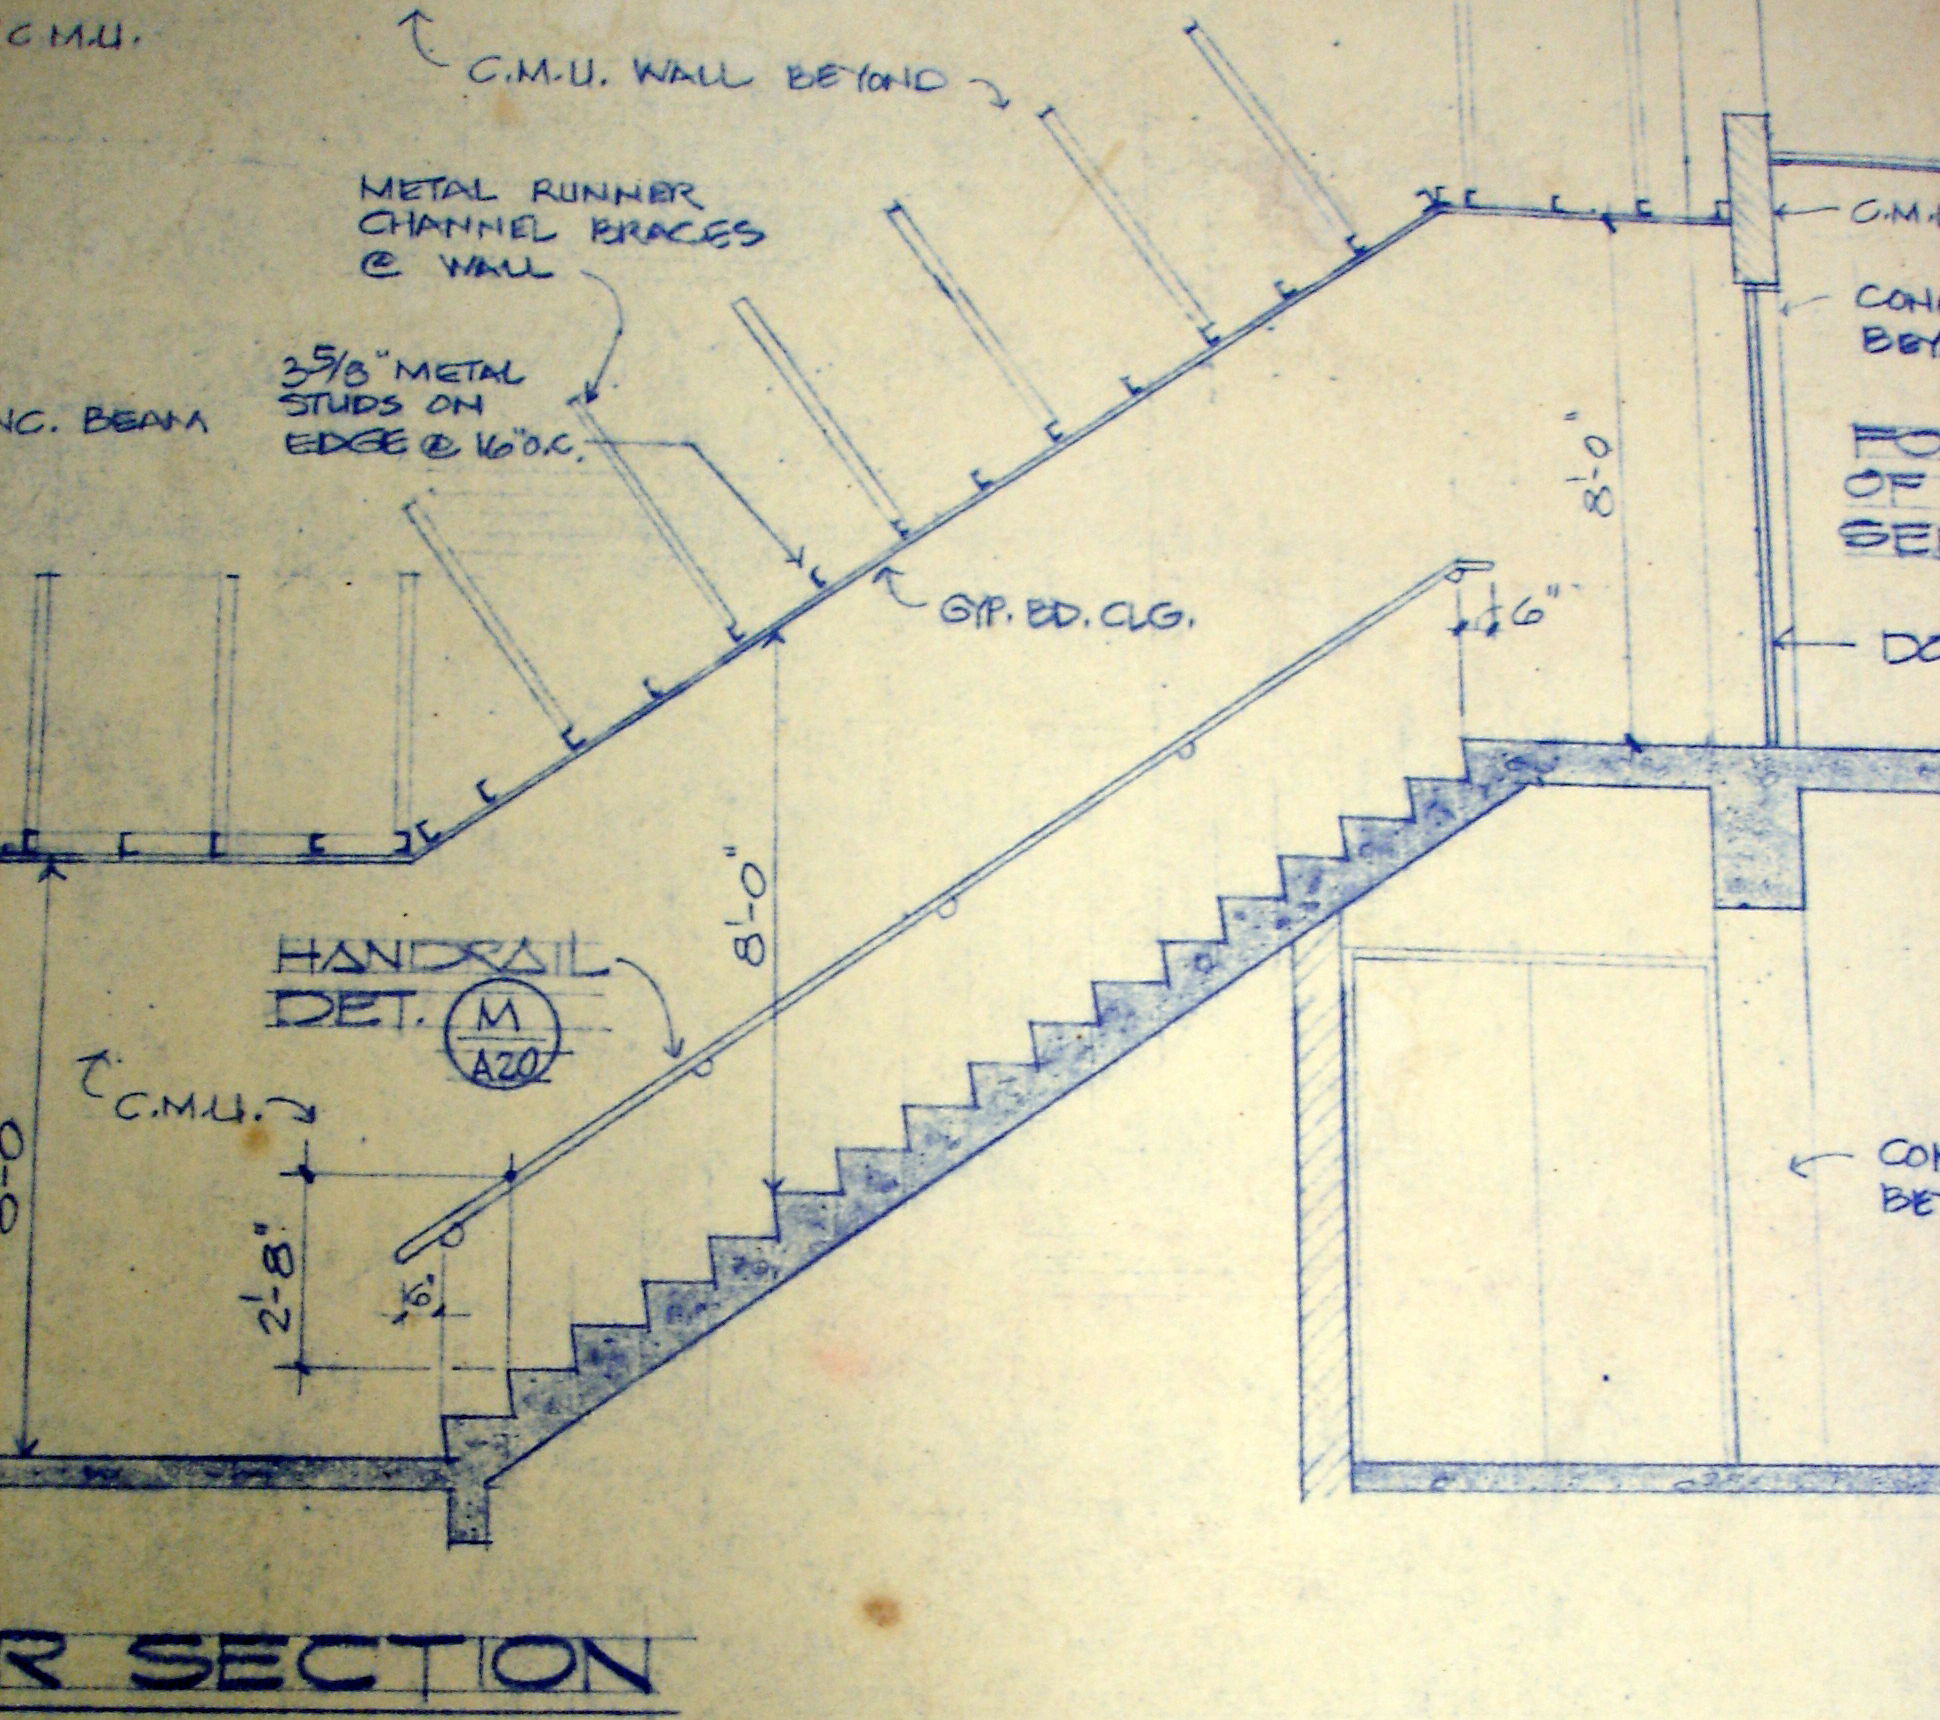 C.M.U.
C.M.U. WALL BEYOND
METAL RUNNER
CHANNEL BRACES
@ WALL
3 5/8" METAL
STUDS ON
EDGE @ 16" O.C.
BEAM
GYP. BD. CLG.
8'-0"
6"
8'-0"
HANDRAIL
DET.
M
A20
C.M.U.
2'-8"
6"
SECTION